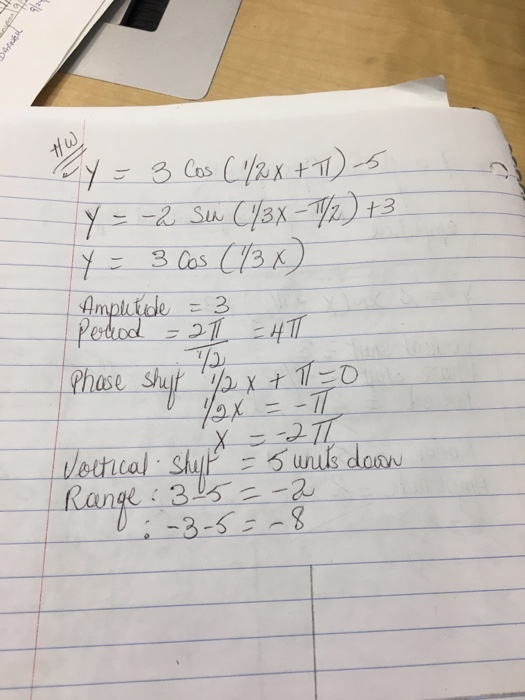 HW
y = 3 Cos (1/2x + π) -5
y = -2 Sin (1/3x - π/2) +3
y = 3 Cos (1/3 x)
Amplitude = 3
Period = 2π = 4π
1/2
Phase shift 1/2 x + π = 0
1/2x = -π
x = -2π
Vertical shift = 5 units down
Range: 3-5 = -2
: -3-5 = -8